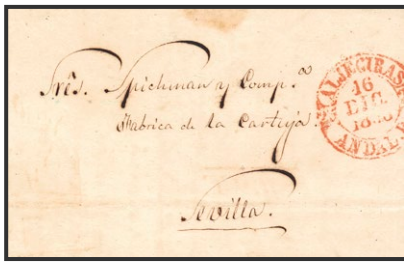 Srês. Spichman y Comp.ª
Fabrica de la Cartuja.
Sevilla.
ALJECIRAS
16
DIC.
ANDAL